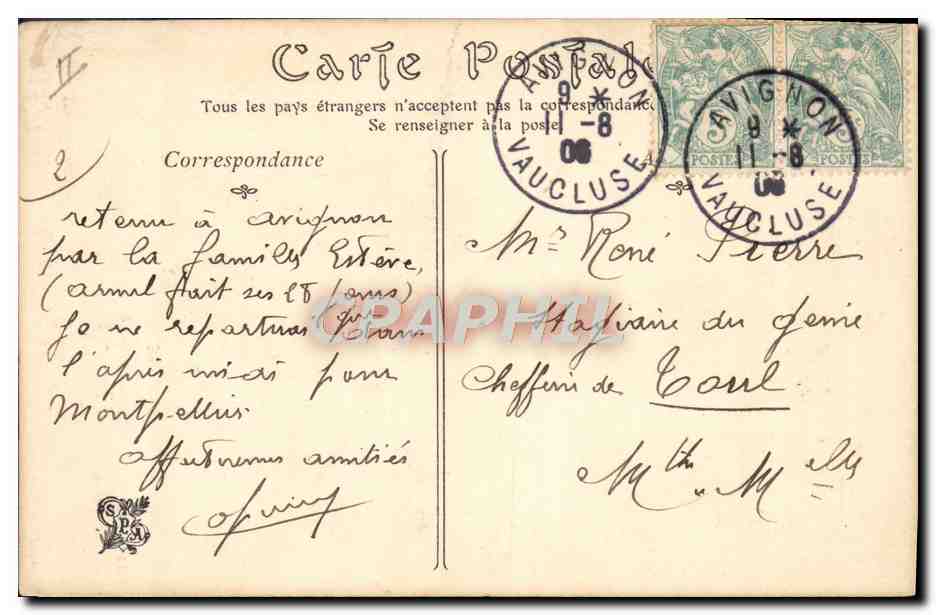 II
2
Carte Postale
Tous les pays étrangers n'acceptent pas la correspondance
Se renseigner à la poste
Correspondance
AVIGNON
9 *
11 - 8
06
VAUCLUSE
AVIGNON
9 *
11 - 8
VAUCLUSE
5
POSTES
5
POSTES
retenu à Avignon
par la famille Estève,
(armel fait ses 28 jours)
je ne repartirai
l'après midi pour
Montpellier
affectueuses amitiés
SPA
CPAPHIL
Mr René Pierre
Stagiaire du génie
Chefferie de Toul
Mthe Mlle